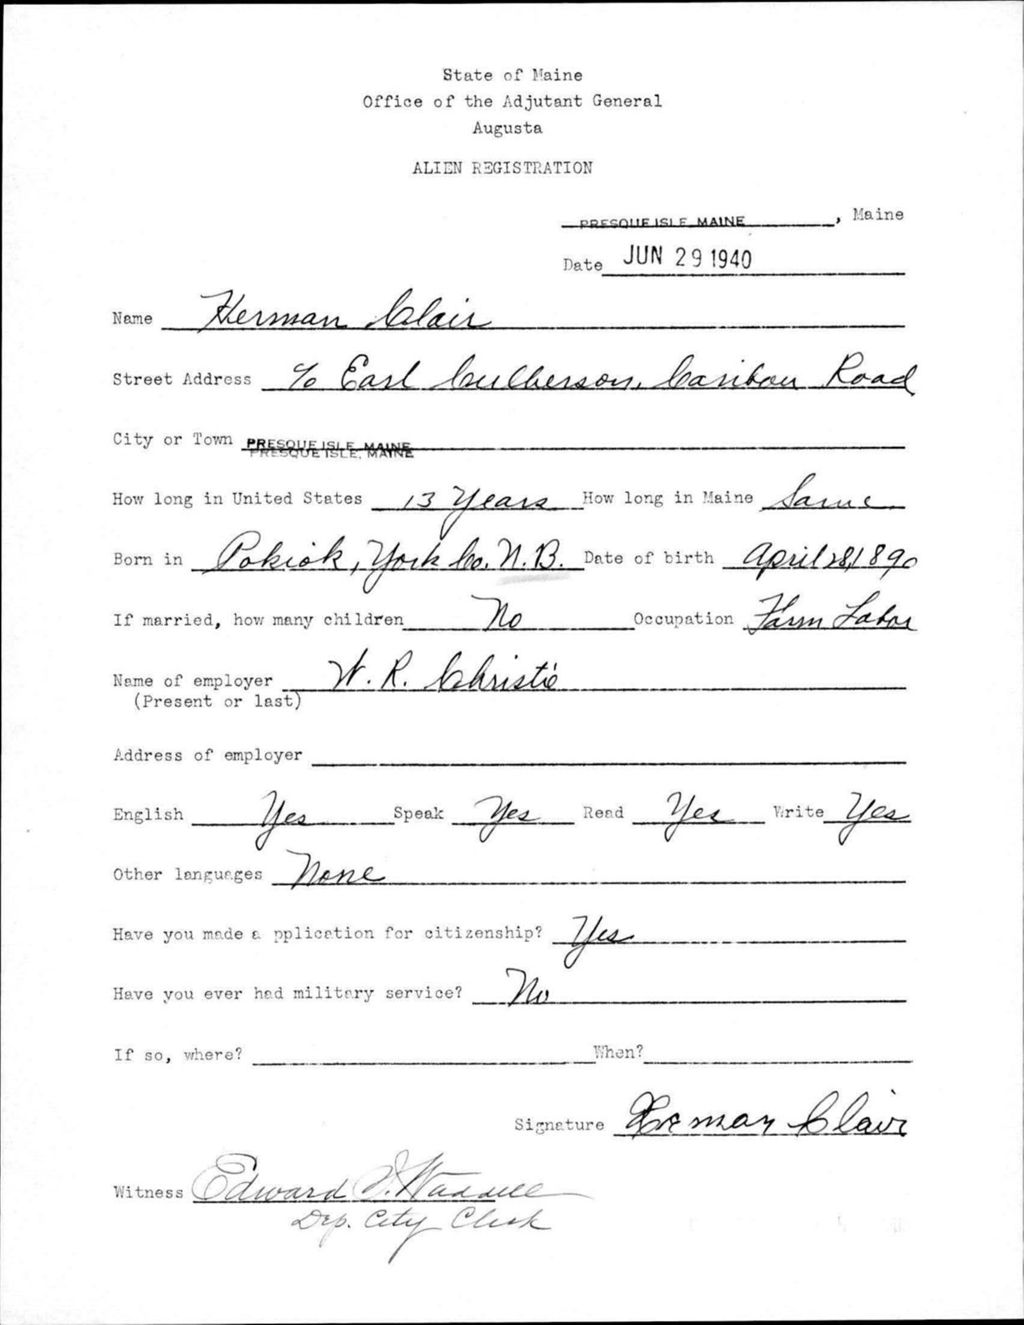 State of Maine
Office of the Adjutant General
Augusta
ALIEN REGISTRATION
PRESQUE ISLE, MAINE, Maine
Date JUN 29 1940
Name Herman Clair
Street Address c/o Earl Culberson, Caribou Road
City or Town PRESQUE ISLE, MAINE
PRESQUE ISLE, MAINE
How long in United States 13 Years How long in Maine Same
Born in Pokiok, York Co. N.B. Date of birth April 28, 1890
If married, how many children No Occupation Farm Labor
Name of employer W. R. Christie
(Present or last)
Address of employer
English Yes Speak Yes Read Yes Write Yes
Other languages None
Have you made a pplication for citizenship? Yes
Have you ever had military service? No
If so, where? When?
Signature Herman Clair
Witness Edward Waddell
Dep. City Clerk